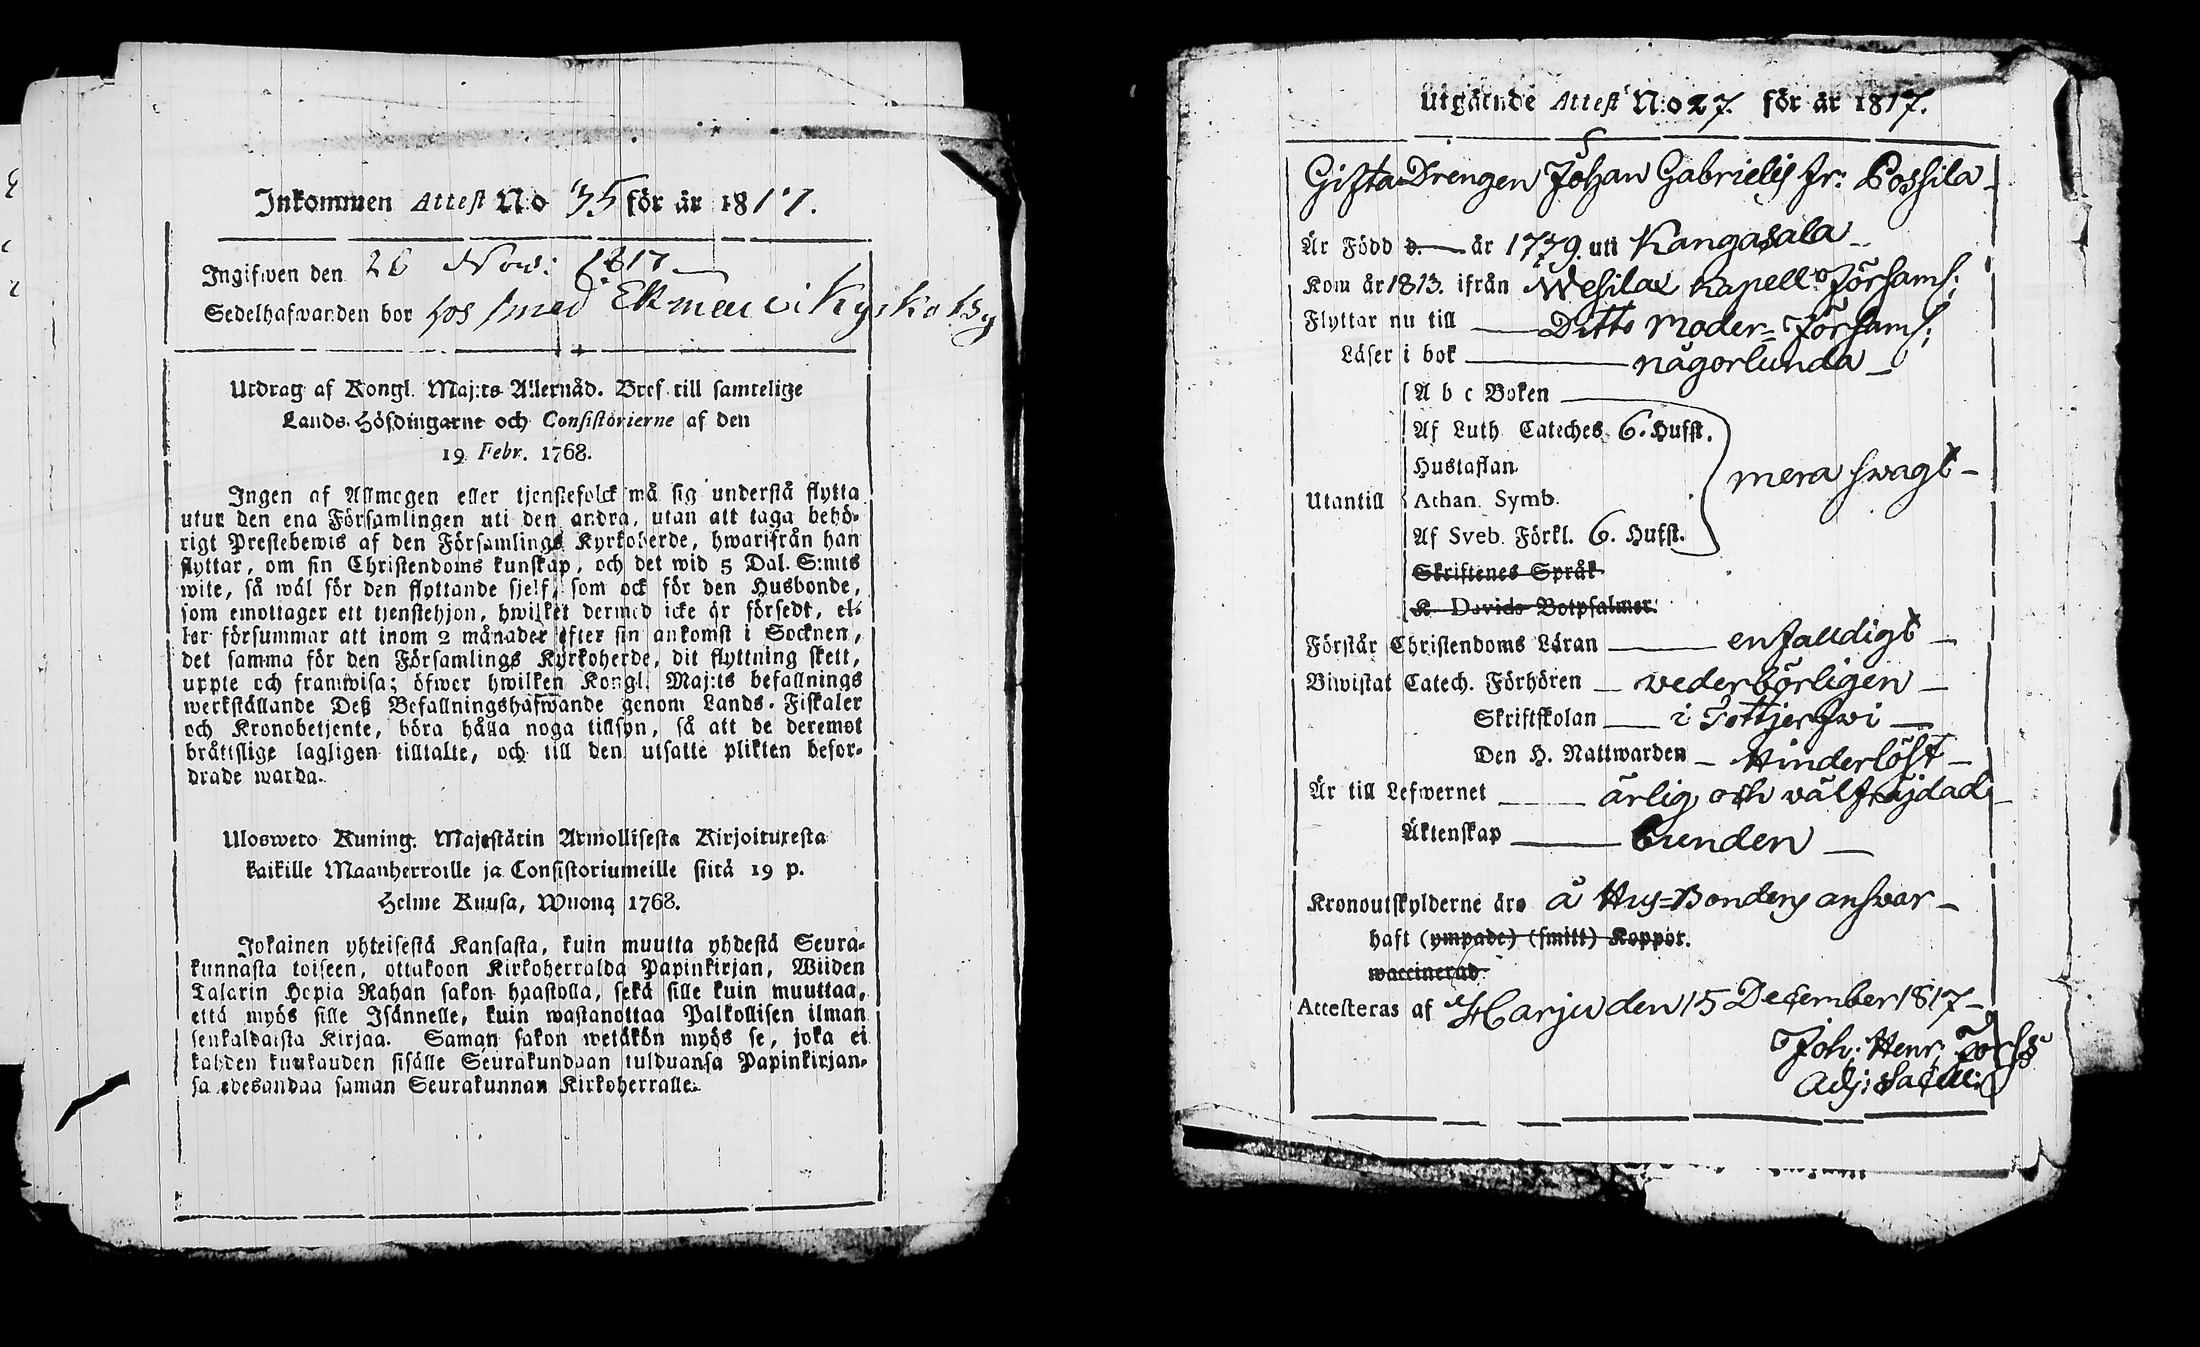 Inkommen Attest No 35 för är 1817.
Ingifwen den 26 Nov: 1817
Sedelhafwanden bor hos smed Ekman i Kyrkoby
Utdrag af Kongl. Maj:ts Allernåd. Bref till samtelige
Lands-Höfdingarne och Consistorierne af den
19 Febr. 1768.
Ingen af Allmogen eller tjenstefolck må sig understå flytta
utur den ena Församlingen uti den andra, utan att taga behö-
rigt Prestebewis af den Församlings Kyrkoherde, hwarifrån han
flyttar, om sin Christendoms kunskap, och det wid 5 Dal. S:mts
wite, så wäl för den flyttande sjelf, som ock för den Husbonde,
som emottager ett tjenstehjon, hwilket dermed icke är försedt, el-
ler försummar att inom 2 månader efter sin ankomst i Socknen,
det samma för den Församlings Kyrkoherde, dit flyttning skett,
uppte och framwisa; öfwer hwilken Kongl. Maj:ts befallnings
werkställande Deß Befallningshafwande genom Lands-Fiskaler
och Kronobetjente, böra hålla noga tillsyn, så att de deremot
bråttslige lagligen tilltalte, och till den utsatte plikten befor-
drade warda.
Ulosweto Kuning. Majestätin Armollisesta Kirjoituxesta
kaikille Maanherroille ja Consistoriumeille siitä 19 p.
Helme Kuusa, Wuona 1768.
Jokainen yhteisestä Kansasta, kuin muutta yhdestä Seura-
kunnasta toiseen, ottakoon Kirkoherralda Papinkirjan, Wiiden
Talarin Hopia Rahan sakon haastolla, sekä sille kuin muuttaa,
että myös sille Isännelle, kuin wastanottaa Palkollisen ilman
senkaldaista Kirjaa. Saman sakon wetäkön myös se, joka ei
kahden kuukauden sisälle Seurakundaan tulduansa Papinkirjan-
sa edesandaa saman Seurakunnan Kirkoherralle.
Utgående Attest N:o 27. för år 1817.
Gifta Drengen Johan Gabrielis fr: Possila
Är Född d. — år 1779. uti Kangasala
Kom år 1813. ifrån Wesilax Kapell Församl:
Flyttar nu till Ditto Moder-Församl:
Läser i bok någorlunda
A b c Boken
Af Luth Cateches 6. Hufst.
Hustaflan
mera swagt
Utantill Athan. Symb.
Af Sveb. Förkl. 6. Hufst.
Skriftenes Språk
K. Davids Botpsalmer.
Förstår Christendoms Läran enfalldigt
Biwistat Catech. Förhören vederbörligen
Skriftskolan i Tottjerfwi
Den H. Nattwarden Hinderlöst
Är till Lefwernet ärlig och välfräjdad
Äktenskap bunden
Kronoutskylderne äro å Hus-Bondens answar
haft (ympade) (smitt) Koppor.
waccinerad.
Attesteras af Harju den 15 December 1817
Joh: Henr:
Adj: Sacell: